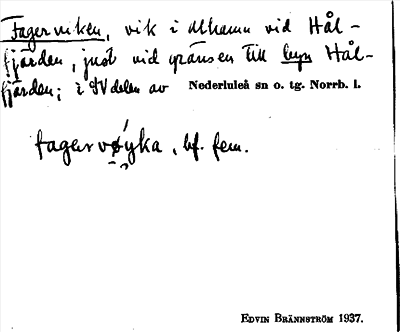 Fagerviken, vik i Althamn vid Hål-
fjärden, just vid gränsen till byn Hål-
fjärden; i SV delen av Nederluleå sn o. tg. Norrb. l.
fagervø̀yka, bf. fem.
EDVIN BRÄNNSTRÖM 1937.